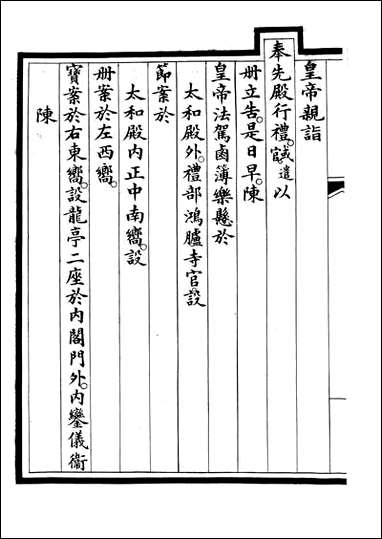 皇帝親詣
奉先殿行禮。或遣官以
册立告。是日早。陳
皇帝法駕鹵簿樂懸於
太和殿外。禮部鴻臚寺官設
節案於
太和殿内正中南嚮。設
册案於左西嚮。
寶案於右東嚮。設龍亭二座於内閣門外。内鑾儀衛
陳